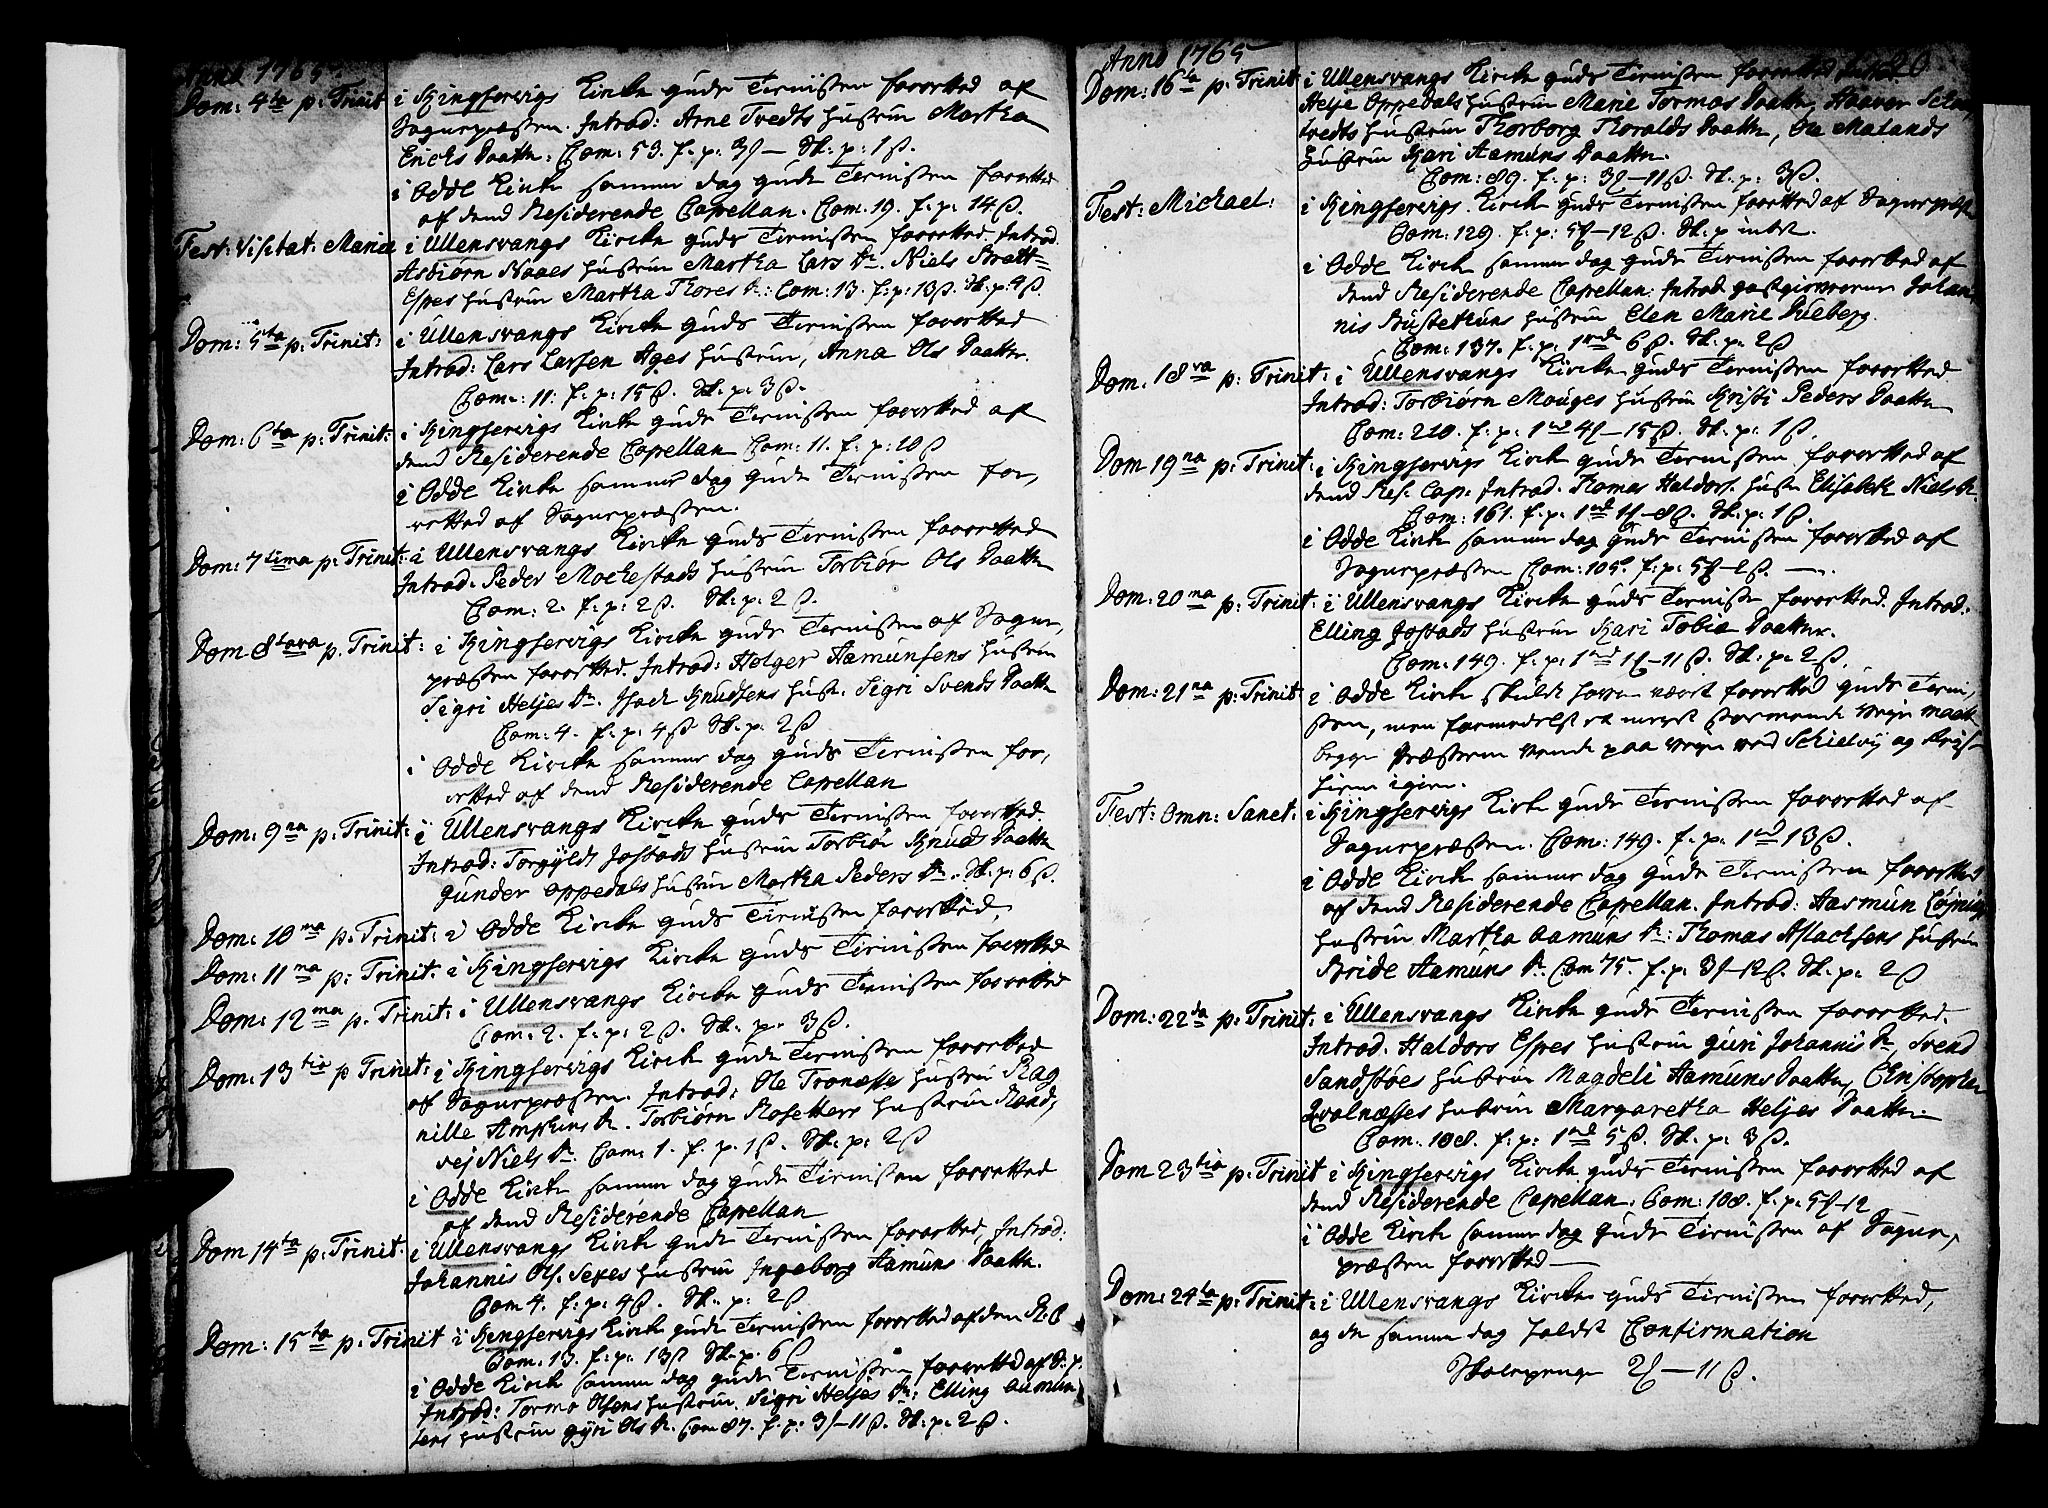 Anno 1765.
Dom: 4ta p: Trinit i Kingservigs Kirke guds Tienisten forretted af
Sognepræsten. Introd: Arne Tvedts Hustrue Martha
Erichs Daatter. Com: 53. f. p: 3ß — Sk: p: 1ß.
i Odde Kirke samme dag guds Tienisten forretted
af dend Residerende Capellan. Com. 19. f. p: 14ß.
Fest: Visitat: Mariæ i Ullensvangs Kirke guds Tienisten forretted. Introd.
Asbiørn Naaes Hustrue Martha Lars Dr. Niels Bratt-
Espes Hustrue Martha Thores Dr: Com: 13. f: p: 13ß. Sk: p. 9ß.
Dom: 5ta p: Trinit: i Ullensvangs Kirke guds Tienisten forretted
Introd: Lars Larsen Ages Hustrue, Anna Ols Daatter.
Com: 11: f: p: 15ß. Sk: p: 3ß.
Dom: 6ta p: Trinit: i Kingservigs Kirke guds Tienisten forretted af
dend Residerende Capellan Com: 11. f: p: 10ß
i Odde Kirke samme dag guds Tienisten for,
retted af Sognepræsten.
Dom: 7tima p: Trinit: i Ullensvangs Kirke guds Tienisten forretted
Introd. Peder Mochestads Hustrue Torbiør Ols Daatter
Com: 2. f: p: 2ß. Sk: p: 2ß.
Dom 8tava p. Trinit: i Kingservigs Kirke guds Tienisten af Sogne,
præsten forretted. Introd: Holger Aamunsens Hustrue
Sigri Heljes Dr. Isach Knudsens Hust: Sigri Svends Daatter
Com: 4. f: p: 4ß Sk: p: 2ß
i Odde Kirke samme dag guds Tienisten for,
retted af dend Residerende Capellan
Dom: 9na p: Trinit: i Ullensvangs Kirke guds Tienisten forretted.
Introd: Torgÿlds Jostads Hustrue Torbiør Knuds Daatter
gunder oppedals Hustrue Martha Peders Dr. Sk: p: 6ß.
Dom: 10ma p: Trinit: i Odde Kirke guds Tienisten forretted,
Dom: 11ma p: Trinit: i Kingservigs Kirke guds Tienisten forretted
Dom: 12ma p. Trinit: i Ullensvangs Kirke guds Tienisten forretted
Com: 2. f: p: 2ß. Sk: p: 3ß.
Dom: 13tia p Trinit: i Kingservigs Kirke guds Tienisten forretted
af Sognepræsten. Introd: Ole Tronæsses Hustrue Rag
nille Amfuns Dr. Torbiørn Rosetters Hustrue Rond,
vej Niels Dr. Com: 1. f. p. 1ß. Sk: p: 2ß
i Odde Kirke samme dag guds Tienisten forretted
af dend Residerende Capellan
Dom 14ta p: Trinit. i Ullensvangs Kirke guds Tienisten forretted, Introd:
Johannis Ols. Sexes Hustrue Ingeborg Aamuns Daatter.
Com 4. f: p: 4ß. Sk: p: 2ß
Dom: 15ta p: Trinit i Kingservigs Kirke guds Tienisten forretted af den R: C
Com: 13. f: p: 13ß Sk: p. 6ß
i Odde Kirke samme dag guds Tienisten forretted af S: p.
Introd: Tormo Olsens Hustrue Sigri Heljes Dr: Elling Aamun
sens Hustrue gÿri Ols Dr. Com 87. f: p: 3ß—11ß. Sk: p: 2ß.
Anno 1765
Dom: 16ta p: Trinit: i Ullensvangs Kirke guds Tienisten forretted Introd
Helje Oppedals Hustrue Marie Tormos Daatter, Haaver
tvedts Hustrue Thorborg Thoralds Daatter, Ole Matands
Hustrue Kari Aamuns Daatter.
Com: 89. f: p: 3ß—11ß. Sk: p: 3ß.
Fest: Michael: i Kingservigs Kirke guds Tienisten forretted af Sogneprest
Com: 129. f: p: 5ß—12ß. Sk: p intet.
i Odde Kirke samme dag guds Tienisten forretted af
dend Residerende Capellan: Introd. gastgiveren Johan
nis Bustethuns Hustrue Elen Marie Dueberg.
Com: 137. f: p: 1rd 6ß. Sk: p: 2ß
Dom: 18va p: Trinit: i Ullensvangs Kirke guds Tienisten forretted
Introd: Torbiørn Mouges Hustrue Kristi Peders Daatter
Com: 210. f: p: 1rd 4ß—15ß. Sk: p: 1ß.
Dom 19na p: Trinit: i Kingservigs Kirke guds Tienisten forretted af
dend Res. Cap: Introd. Thomas Haldors. Hust Elisabeth Niels Dr.
Com: 161. f: p: 1rd 1ß—8ß. Sk: p: 1ß.
i Odde Kirke samme dag guds Tienisten forretted af
Sognepræsten Com: 105. f: p: 5ß—2ß. —.
Dom: 20ma p: Trinit: i Ullensvangs Kirke guds Tieniste forretted. Introd.
Elling Jostads Hustrue Kari Tobia Daatter.
Com: 149. f: p: 1rd 1ß—11ß. Sk: p: 2ß.
Dom: 21na p: Trinit i Odde Kirke skulde have været forretted guds Tieni,
sten, men formedelst et meget stormende Vejr maatte
begge Præsterne vende paa vejen ved Schielvig og Rejse
hiem igien.
Fest: Omn: Sanct: i Kingservigs Kirke guds Tienisten forretted af
Sognepræsten. Com: 149. f: p: 1rd 13ß.
i Odde Kirke samme dag guds Tienisten forretted
af dend Residerende Capellan. Introd: Aasmun
Hustrue Martha aamuns Dr: Thomas Aslachsens Hustrue
Bride Aamuns Dr. Com 75. f: p: 3ß—12ß. Sk: p: 2ß
Dom: 22da p: Trinit: i Ullensvangs Kirke guds Tienisten forretted.
Introd. Haldors Espes Hustrue guri Johannis Dr, Svend
Sandstøes Hustrue Magdeli Aamuns Daatter, Christopher
Qvalnæsses Hustrue Margaretha Heljes Daatter.
Com: 108. f: p: 1rd 5ß. Sk: p: 3ß.
Dom 23tia p: Trinit i Kingservigs Kirke guds Tienisten forretted af
dend Residerende Capellan. Com: 108. f: p: 5ß—12
i Odde Kirke samme dag guds Tienisten af Sogne,
præsten forretted —
Dom: 24ta p: Trinit: i Ullensvangs Kirke guds Tienisten forretted,
og den samme dag holdt Confirmation
Skolepenge 2ß—11ß.